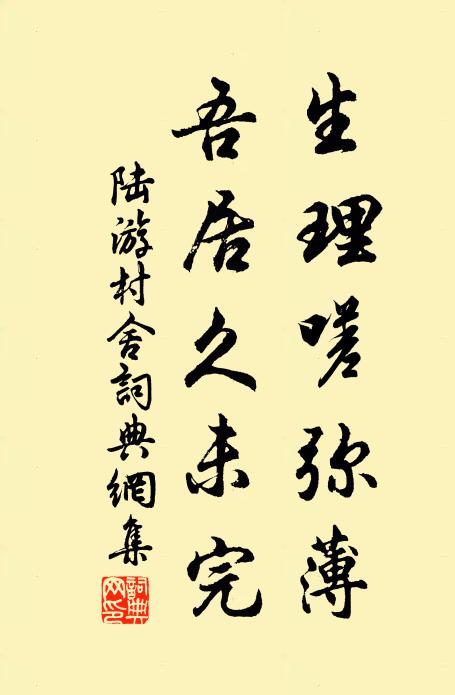 生理嗟弥薄
吾居久未完
陆游村舍詞典網集
詞典网印